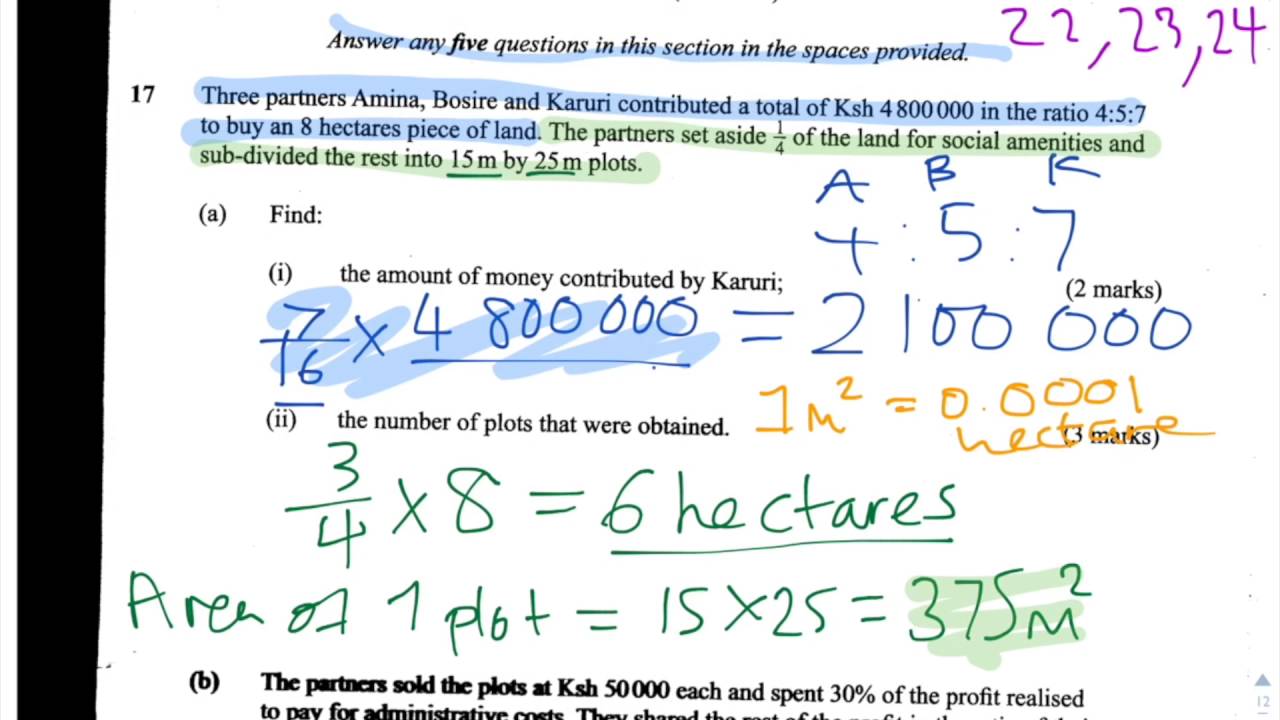 Answer any five questions in this section in the spaces provided.
22, 23, 24
17 Three partners Amina, Bosire and Karuri contributed a total of Ksh 4 800 000 in the ratio 4:5:7
to buy an 8 hectares piece of land. The partners set aside 1/4 of the land for social amenities and
sub-divided the rest into 15 m by 25 m plots.
A B K
4 : 5 : 7
(a) Find:
(i) the amount of money contributed by Karuri; (2 marks)
7/16 × 4 800 000 = 2 100 000
1m² = 0.0001
hectare
(ii) the number of plots that were obtained. (3 marks)
3/4 × 8 = 6 hectares
Area of 1 plot = 15 × 25 = 375m²
(b) The partners sold the plots at Ksh 50 000 each and spent 30% of the profit realised
to pay for administrative costs. They shared the rest of the profit in the
12